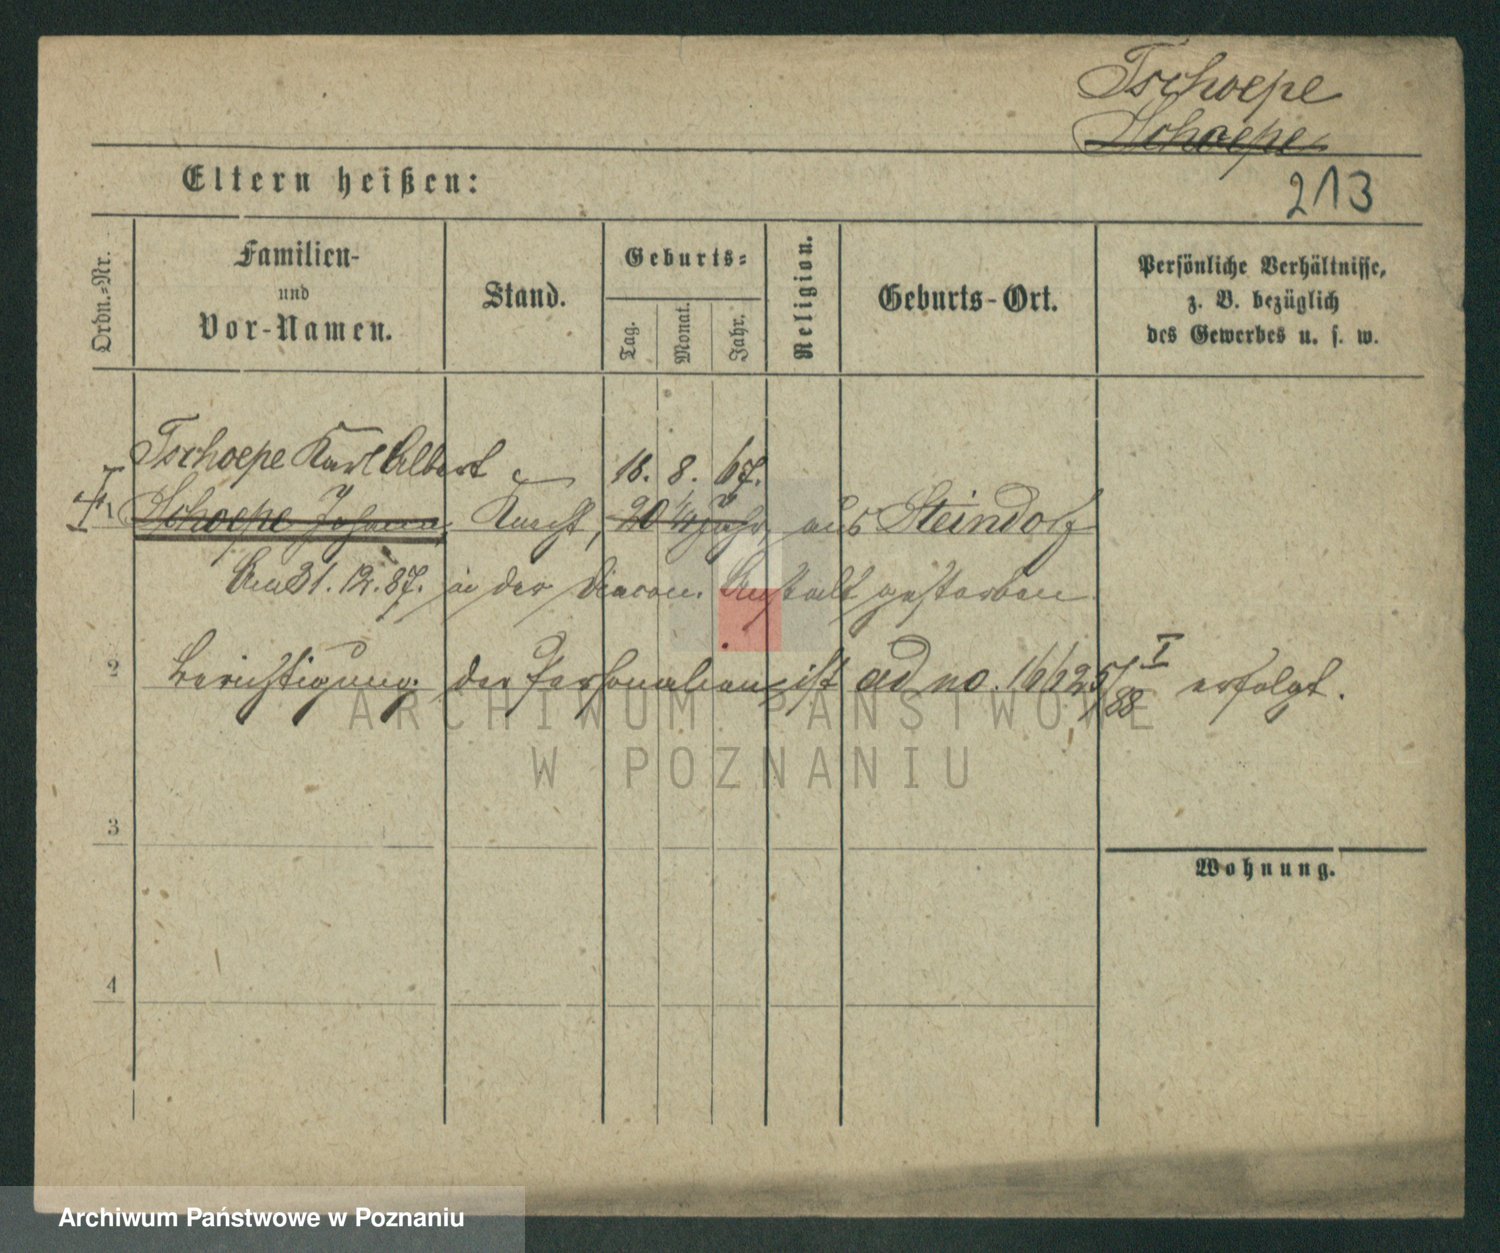 Tschoepe
Schoepe
Eltern heißen:
213
Ordn.-Nr.
Familien-
und
Vor-Namen.
Stand.
Geburts-
Tag.
Monat.
Jahr.
Religion.
Geburts-Ort.
Persönliche Verhältnisse,
z. B. bezüglich
des Gewerbes u. s. w.
Tschoepe Karl Albert 18. 8. 67.
1 Schoepe Johann, Knecht, 20 1/4 Jahr, aus Steindorf
Am 31. 12. 87. in der Diacon. Anstalt gestorben.
2 Berichtigung der Personalien ist ad no. 16625/88 I erfolgt.
3
Wohnung.
4
ARCHIWUM PAŃSTWOWE
W POZNANIU
Archiwum Państwowe w Poznaniu